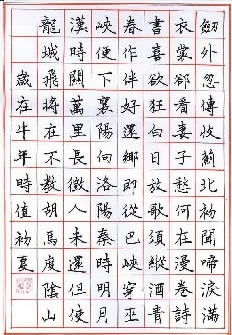 劒外忽傳收薊北初聞啼淚滿
衣裳卻看妻子愁何在漫卷詩
書喜欲狂白日放歌須縱酒青
春作伴好還鄉即從巴峽穿巫
峽便下襄陽向洛陽秦時明月
漢時關萬里長徵人未還但使
龍城飛將在不教胡馬度陰山
歲在牛年時值初夏